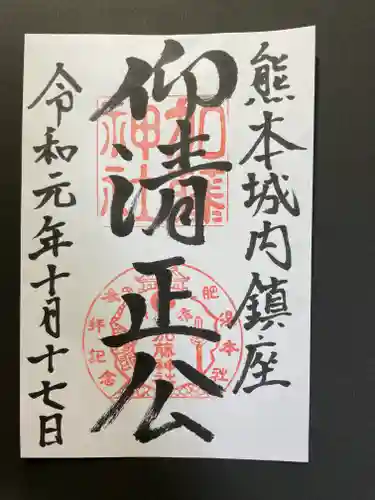 熊本城内鎮座
仰清正公
令和元年十月十七日
加藤神社
肥後本社
参拝記念
加藤神社